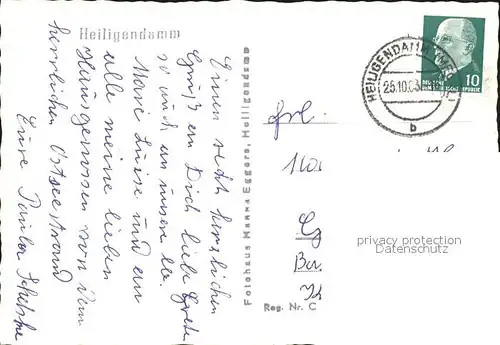 Heiligendamm
Einen recht herzlichen
Gruß an Dich liebe Greten
so auch an unsere lb.
Marie Luise und an
alle meine lieben
Hausgenossen von dem
herrlichen Ostseestrand
Eure Pauline
Fotohaus Hanna Eggers, Heiligendamm
Reg. Nr. C
HEILIGENDAMM
25.10.63
b
10
DEUTSCHE
DEMOKRATISCHE REPUBLIK
Frl.
privacy protection
Datenschutz